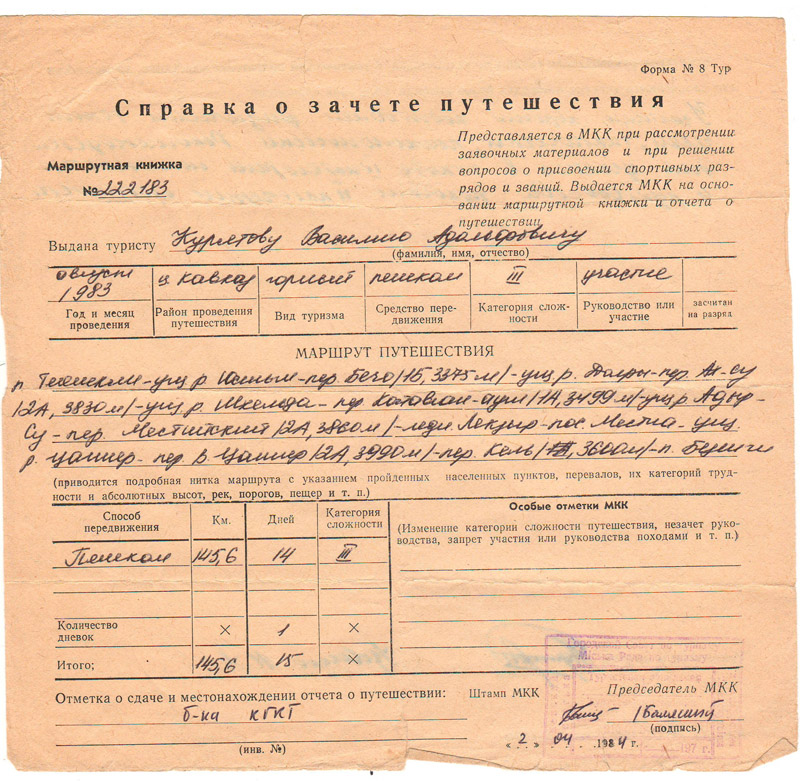 Форма № 8 Тур
Справка о зачете путешествия
Представляется в МКК при рассмотрении
заявочных материалов и при решении
вопросов о присвоении спортивных раз-
рядов и званий. Выдается МКК на осно-
вании маршрутной книжки и отчета о
путешествии.
Маршрутная книжка
№ 222183
Выдана туристу Василию Адольфовичу
(фамилия, имя, отчество)
август 1983 ц Кавказ горный пешком III участие
Год и месяц проведения Район проведения путешествия Вид туризма Средство пере-движения Категория слож-ности Руководство или участие засчитан на разряд
МАРШРУТ ПУТЕШЕСТВИЯ
п. Тегенекли-ущ. р. Юсеньги-пер. Бечо/1Б, 3375м/-ущ. р. Долры-пер. Ак-су
/2А, 3830м/-ущ. р. Шхельда-пер. ауш/1А, 3499м/-ущ р Адыр-
Су-пер. Местийский/2А, 3860м/-ледн Лекзыр-пос. Местиа-ущ.
р. Цаннер-пер В Цаннер/2А, 3990м/-пер. 3600м/-п.
(приводится подробная нитка маршрута с указанием пройденных населенных пунктов, перевалов, их категорий труд-
ности и абсолютных высот, рек, порогов, пещер и т. п.)
Способ передвижения Км. Дней Категория сложности
Пешком 145,6 14 III
Количество дневок × 1 ×
Итого; 145,6 15 ×
Особые отметки МКК
(Изменение категории сложности путешествия, незачет руко-
водства, запрет участия или руководства походами и т. п.)
Отметка о сдаче и местонахождении отчета о путешествии:
б-ка КГКТ
(инв. №)
Штамп МКК
Председатель МКК
(подпись)
«2» 04 1984 г.